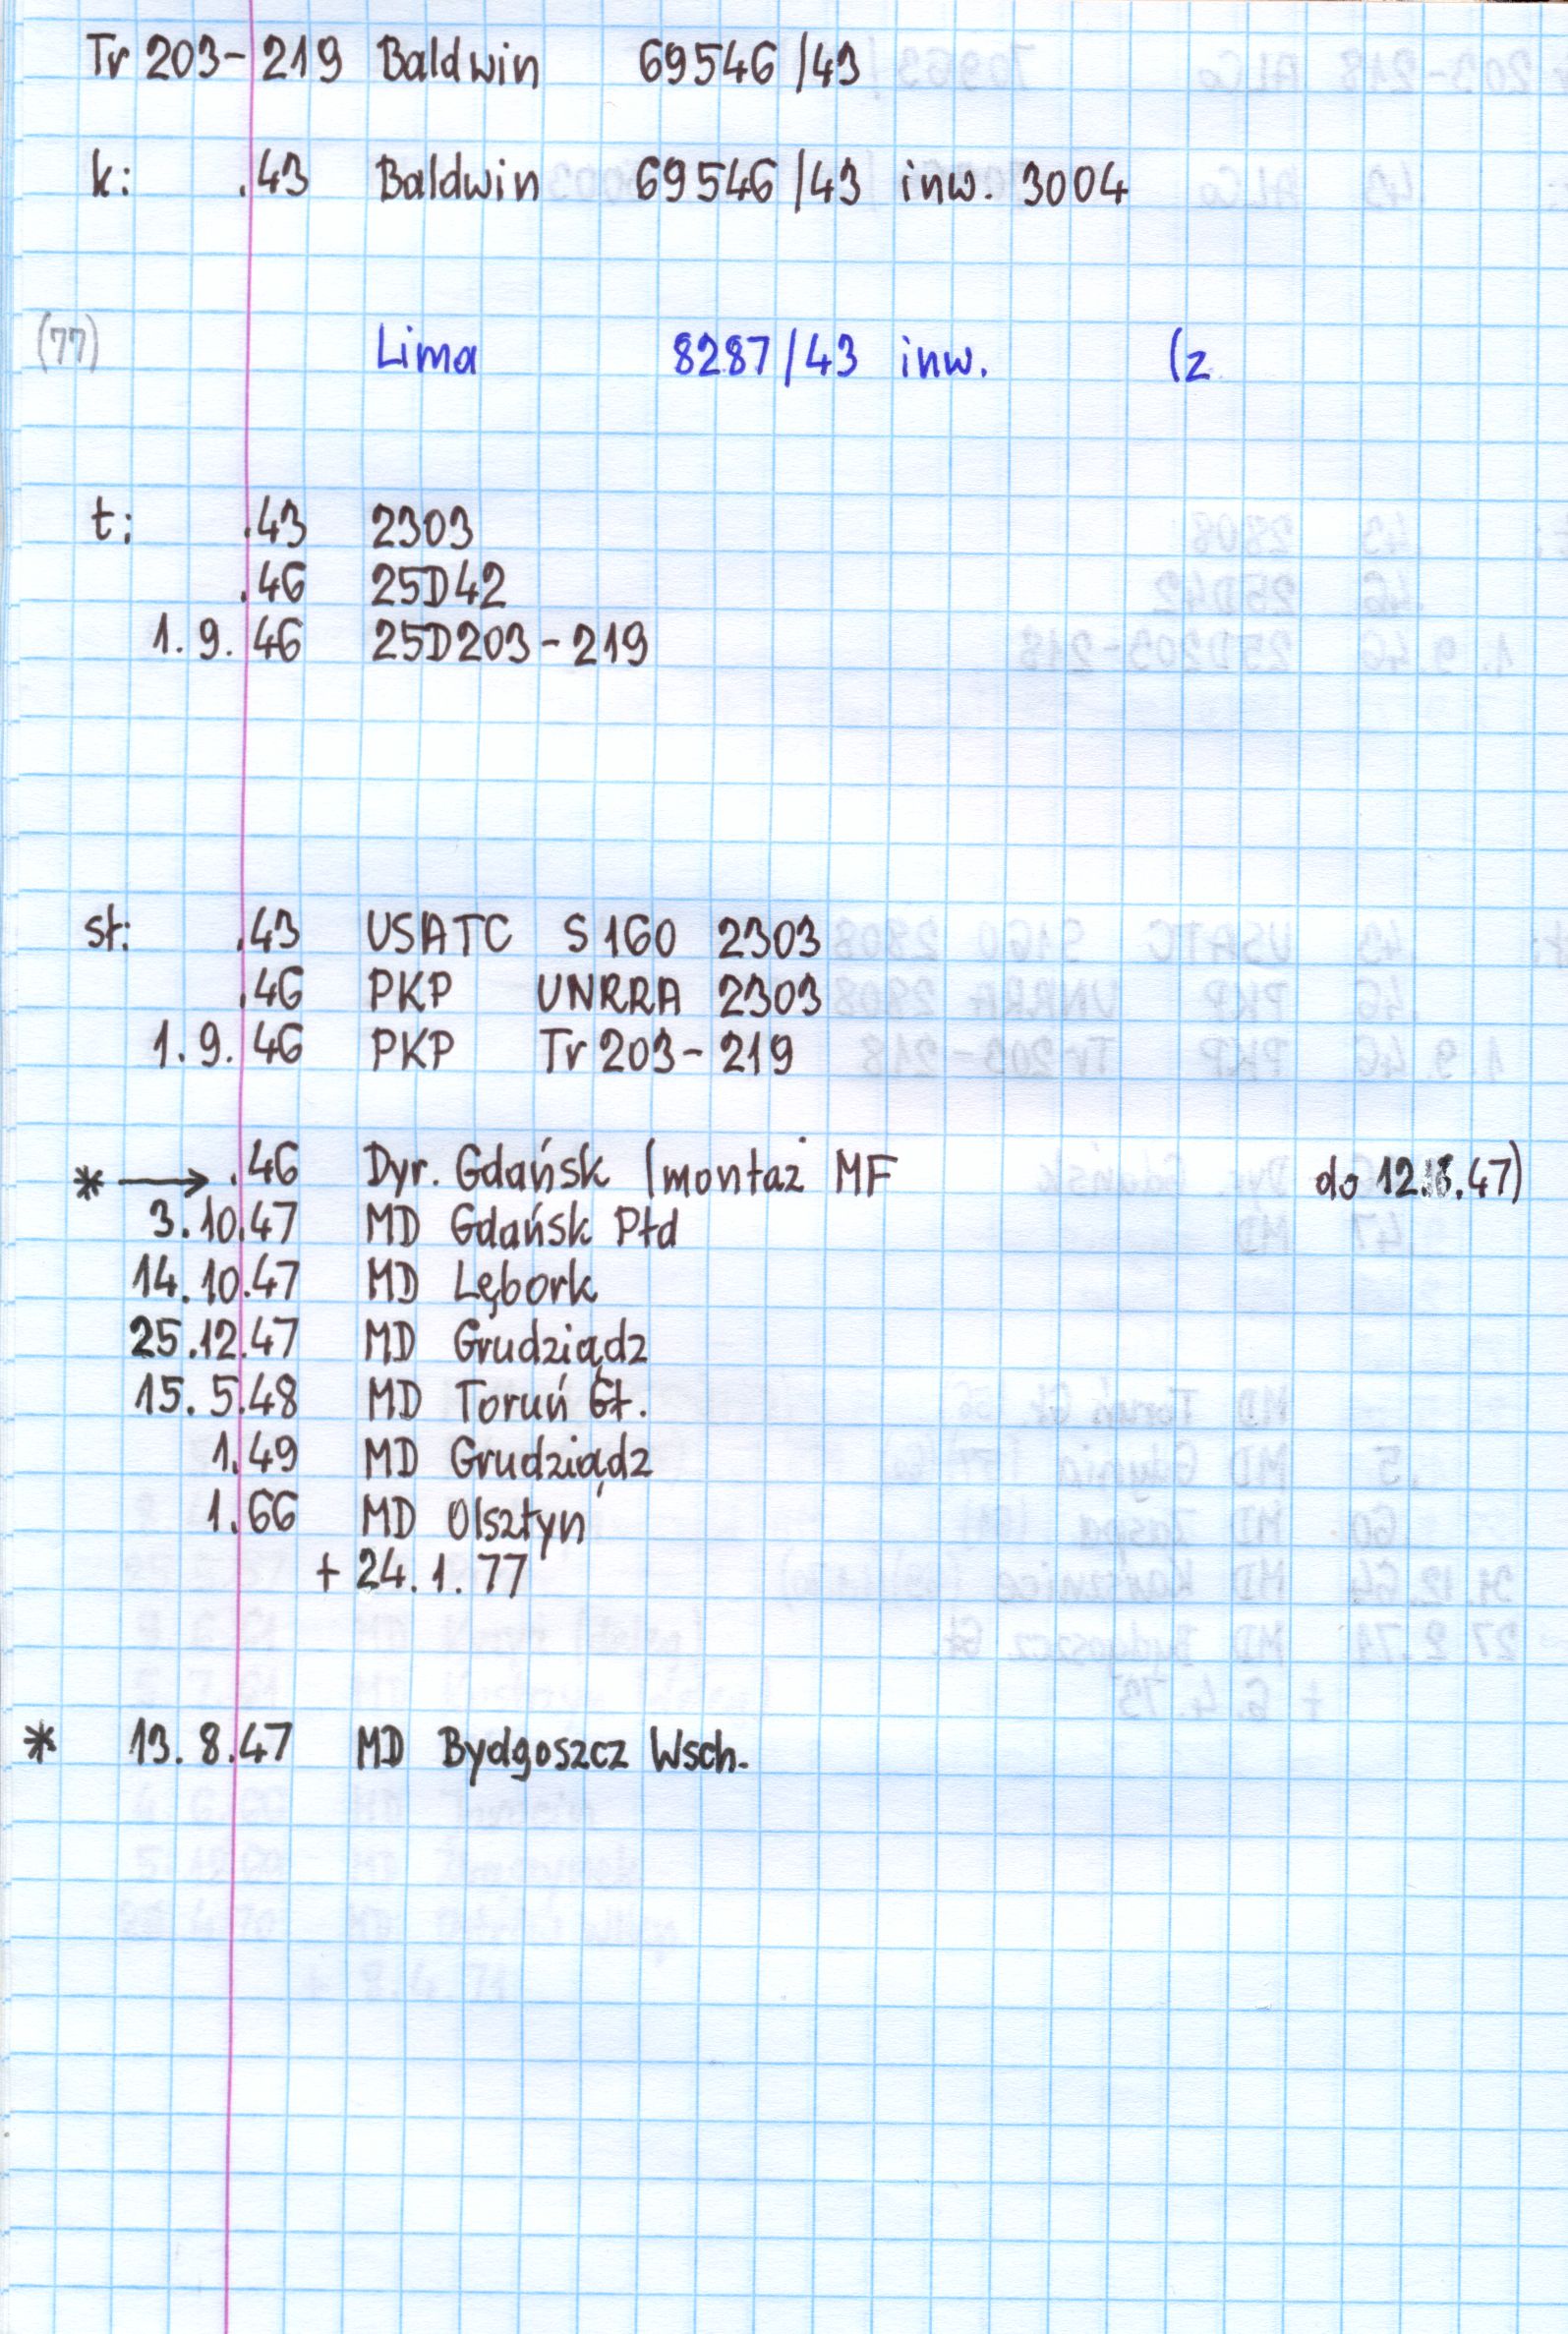 Tr 203-219 Baldwin 69546/43
k: .43 Baldwin 69546/43 inw. 3004
(77) Lima 8287/43 inw. (z
t: .43 2303
.46 25D42
1.9.46 25D203-219
st: .43 USATC S160 2303
.46 PKP UNRRA 2303
1.9.46 PKP Tr 203-219
* → .46 Dyr. Gdańsk (montaż MF do 12.8.47)
3.10.47 MD Gdańsk Płd
14.10.47 MD Lębork
25.12.47 MD Grudziądz
15.5.48 MD Toruń Gł.
1.49 MD Grudziądz
1.66 MD Olsztyn
+ 24.1.77
* 13.8.47 MD Bydgoszcz Wsch.